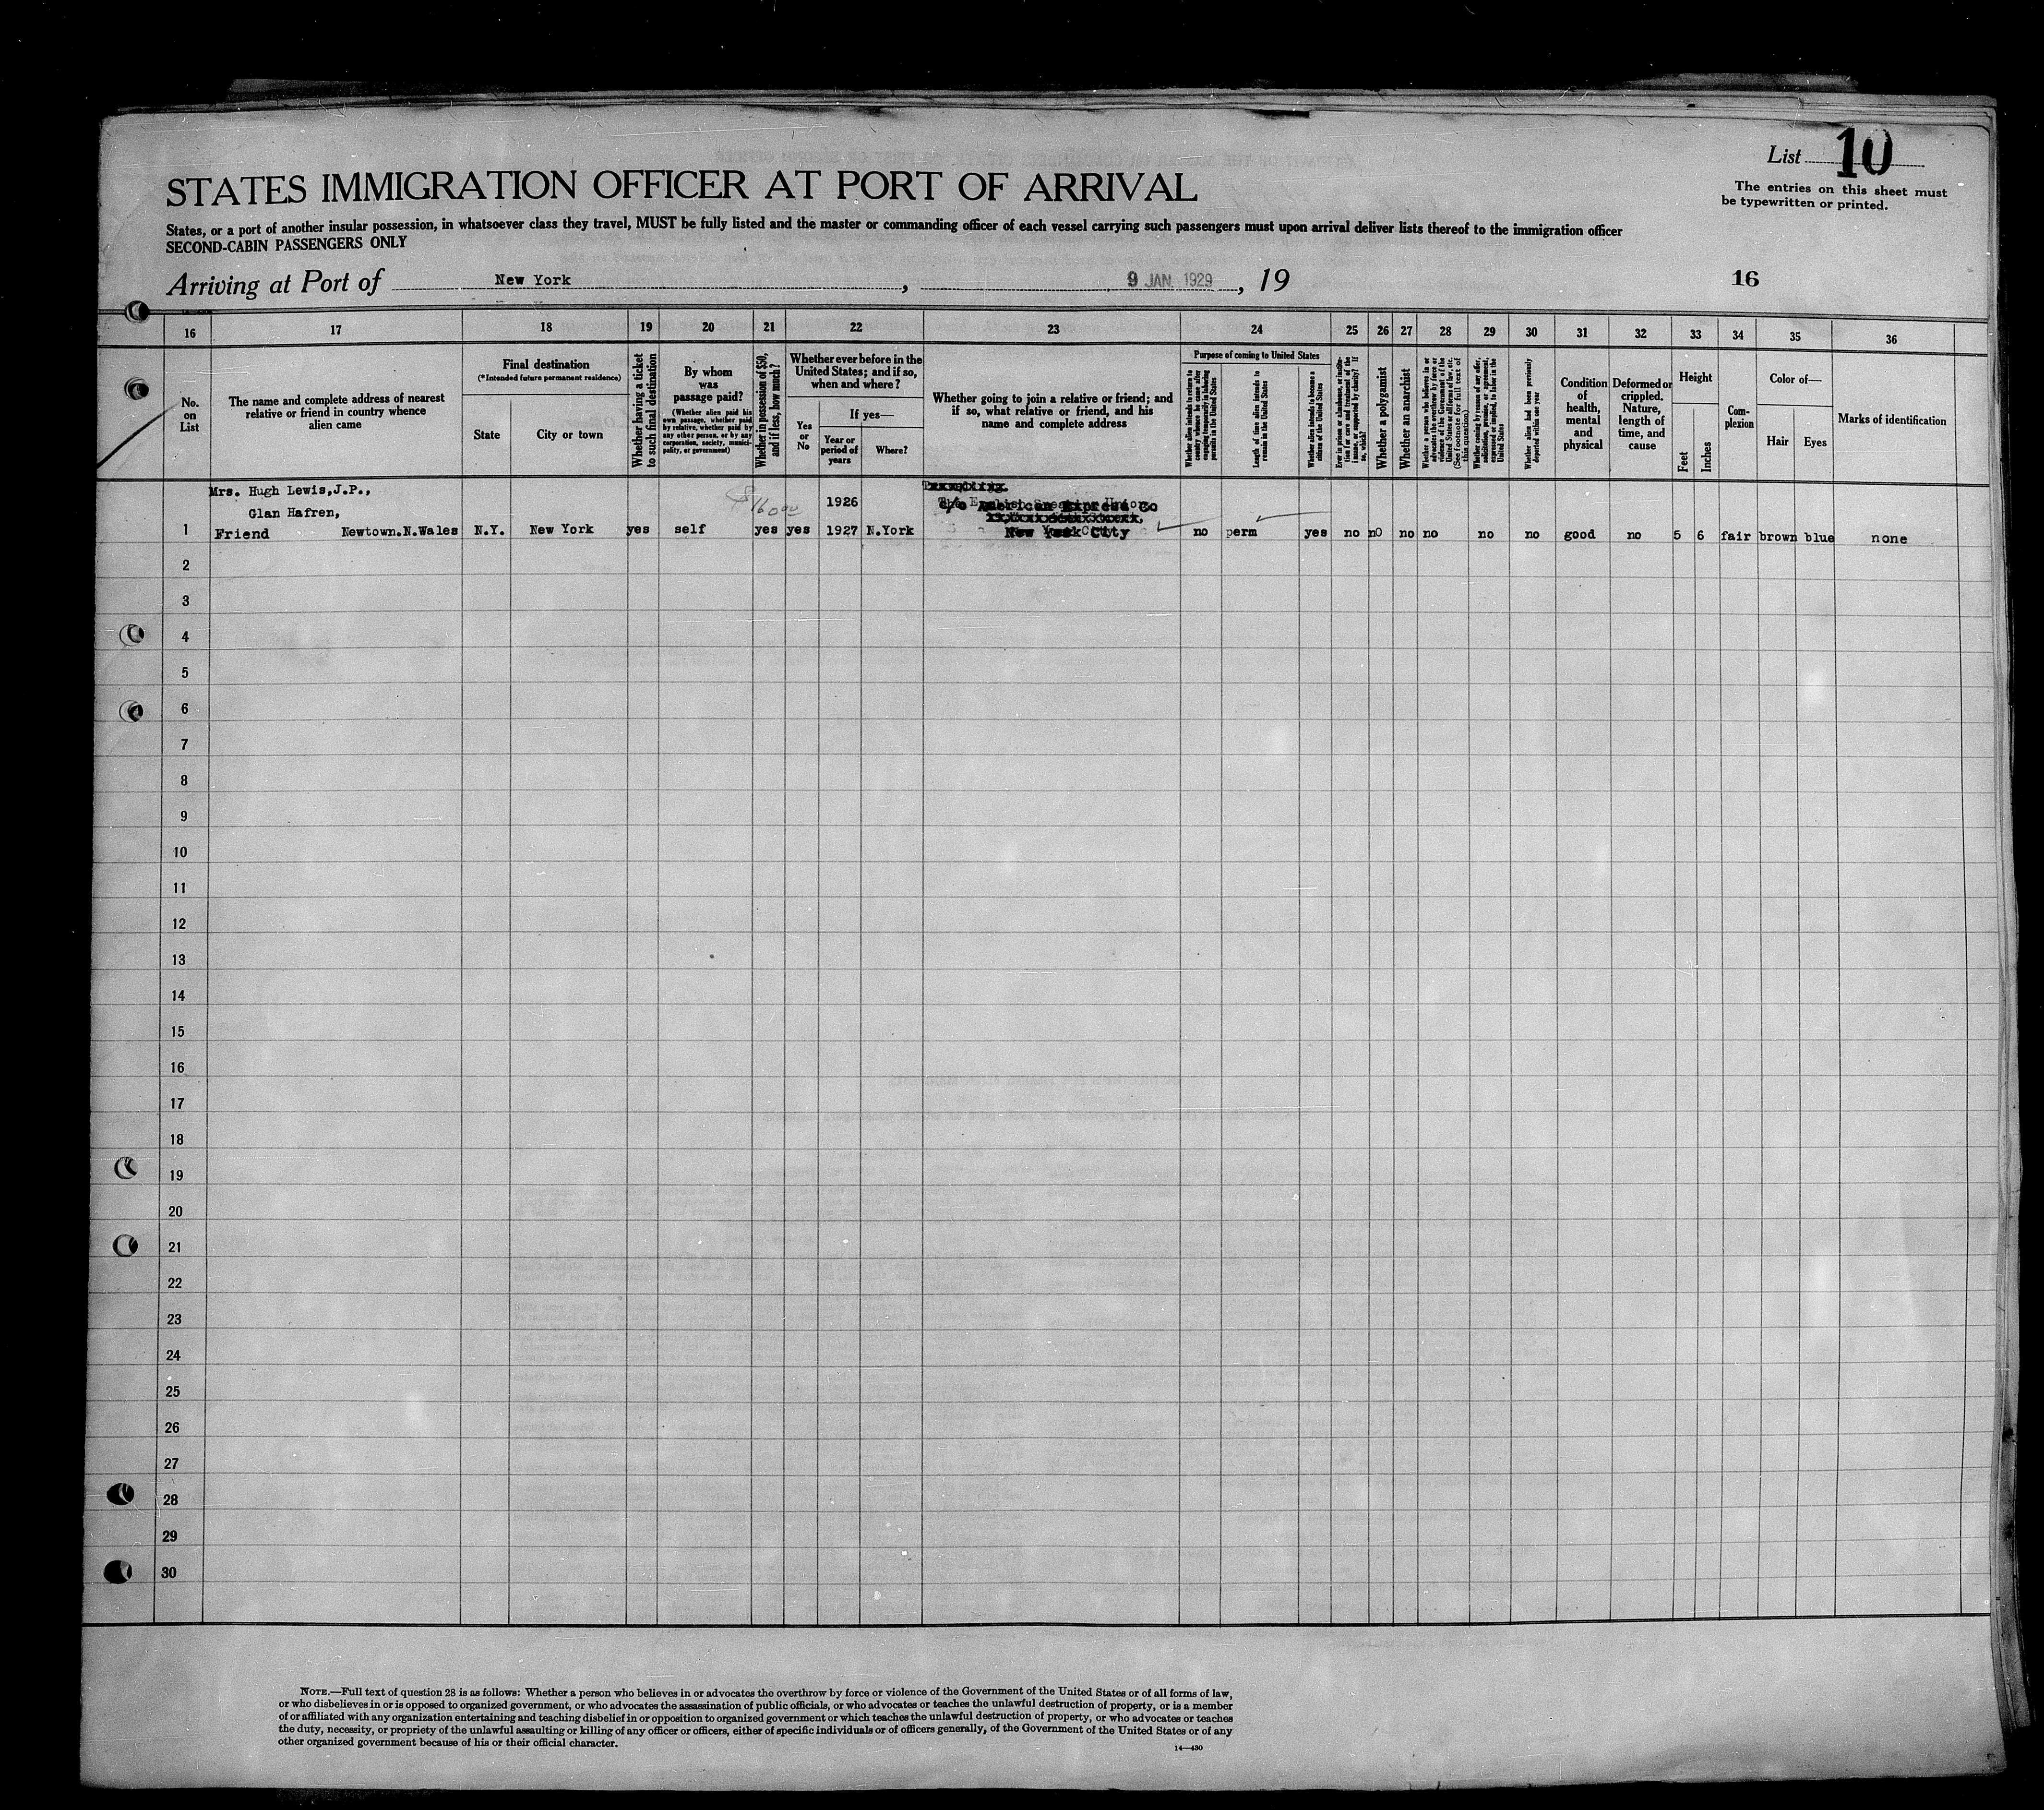 List 10
The entries on this sheet must
be typewritten or printed.
STATES IMMIGRATION OFFICER AT PORT OF ARRIVAL
States, or a port of another insular possession, in whatsoever class they travel, MUST be fully listed and the master or commanding officer of each vessel carrying such passengers must upon arrival deliver lists thereof to the immigration officer
SECOND-CABIN PASSENGERS ONLY
Arriving at Port of New York, 9 JAN 1929, 19
16
16 17 18 19 20 21 22 23 24 25 26 27 28 29 30 31 32 33 34 35 36
No.
on
List
The name and complete address of nearest
relative or friend in country whence
alien came
Final destination
(*Intended future permanent residence)
State
City or town
Whether having a ticket
to such final destination
By whom
was
passage paid?
(Whether alien paid his
own passage, whether paid
by relative, whether paid by
any other person, or by any
corporation, society, munici-
pality, or government)
Whether in possession of $50,
and if less, how much?
Whether ever before in the
United States; and if so,
when and where?
Yes
or
No
If yes—
Year or
period of
years
Where?
Whether going to join a relative or friend; and
if so, what relative or friend, and his
name and complete address
Purpose of coming to United States
Whether alien intends to return to
country whence he came after
engaging temporarily in laboring
pursuits in the United States
Length of time alien intends to
remain in the United States
Whether alien intends to become a
citizen of the United States
Ever in prison or almshouse, or institu-
tion for care and treatment of the
insane, or supported by charity? If
so, which?
Whether a polygamist
Whether an anarchist
Whether a person who believes in or
advocates the overthrow by force or
violence of the Government of the
United States or all forms of law, etc.
(See footnote for full text of
this question)
Whether coming by reason of any offer,
solicitation, promise, or agreement,
expressed or implied, to labor in the
United States
Whether alien had been previously
deported within one year
Condition
of
health,
mental
and
physical
Deformed or
crippled.
Nature,
length of
time, and
cause
Height
Feet
Inches
Com-
plexion
Color of—
Hair
Eyes
Marks of identification
Mrs. Hugh Lewis,J.P.,
Glan Hafren,
1926
c/o American Express Co
1 Friend Newtown.N.Wales N.Y. New York yes self yes yes 1927 N.York New York City no perm yes no nO no no no no good no 5 6 fair brown blue none
2
3
4
5
6
7
8
9
10
11
12
13
14
15
16
17
18
19
20
21
22
23
24
25
26
27
28
29
30
NOTE.—Full text of question 28 is as follows: Whether a person who believes in or advocates the overthrow by force or violence of the Government of the United States or of all forms of law,
or who disbelieves in or is opposed to organized government, or who advocates the assassination of public officials, or who advocates or teaches the unlawful destruction of property, or is a member
of or affiliated with any organization entertaining and teaching disbelief in or opposition to organized government or which teaches the unlawful destruction of property, or who advocates or teaches
the duty, necessity, or propriety of the unlawful assaulting or killing of any officer or officers, either of specific individuals or of officers generally, of the Government of the United States or of any
other organized government because of his or their official character.
14—430